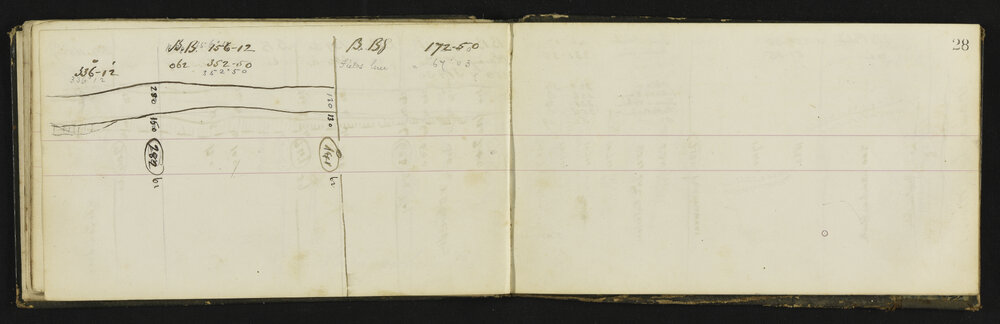 B.B. 156-12
B. Bf 172-50
062 352-50
67°03
352°50
336-12
336 12
280
150
120
130
282
141
28